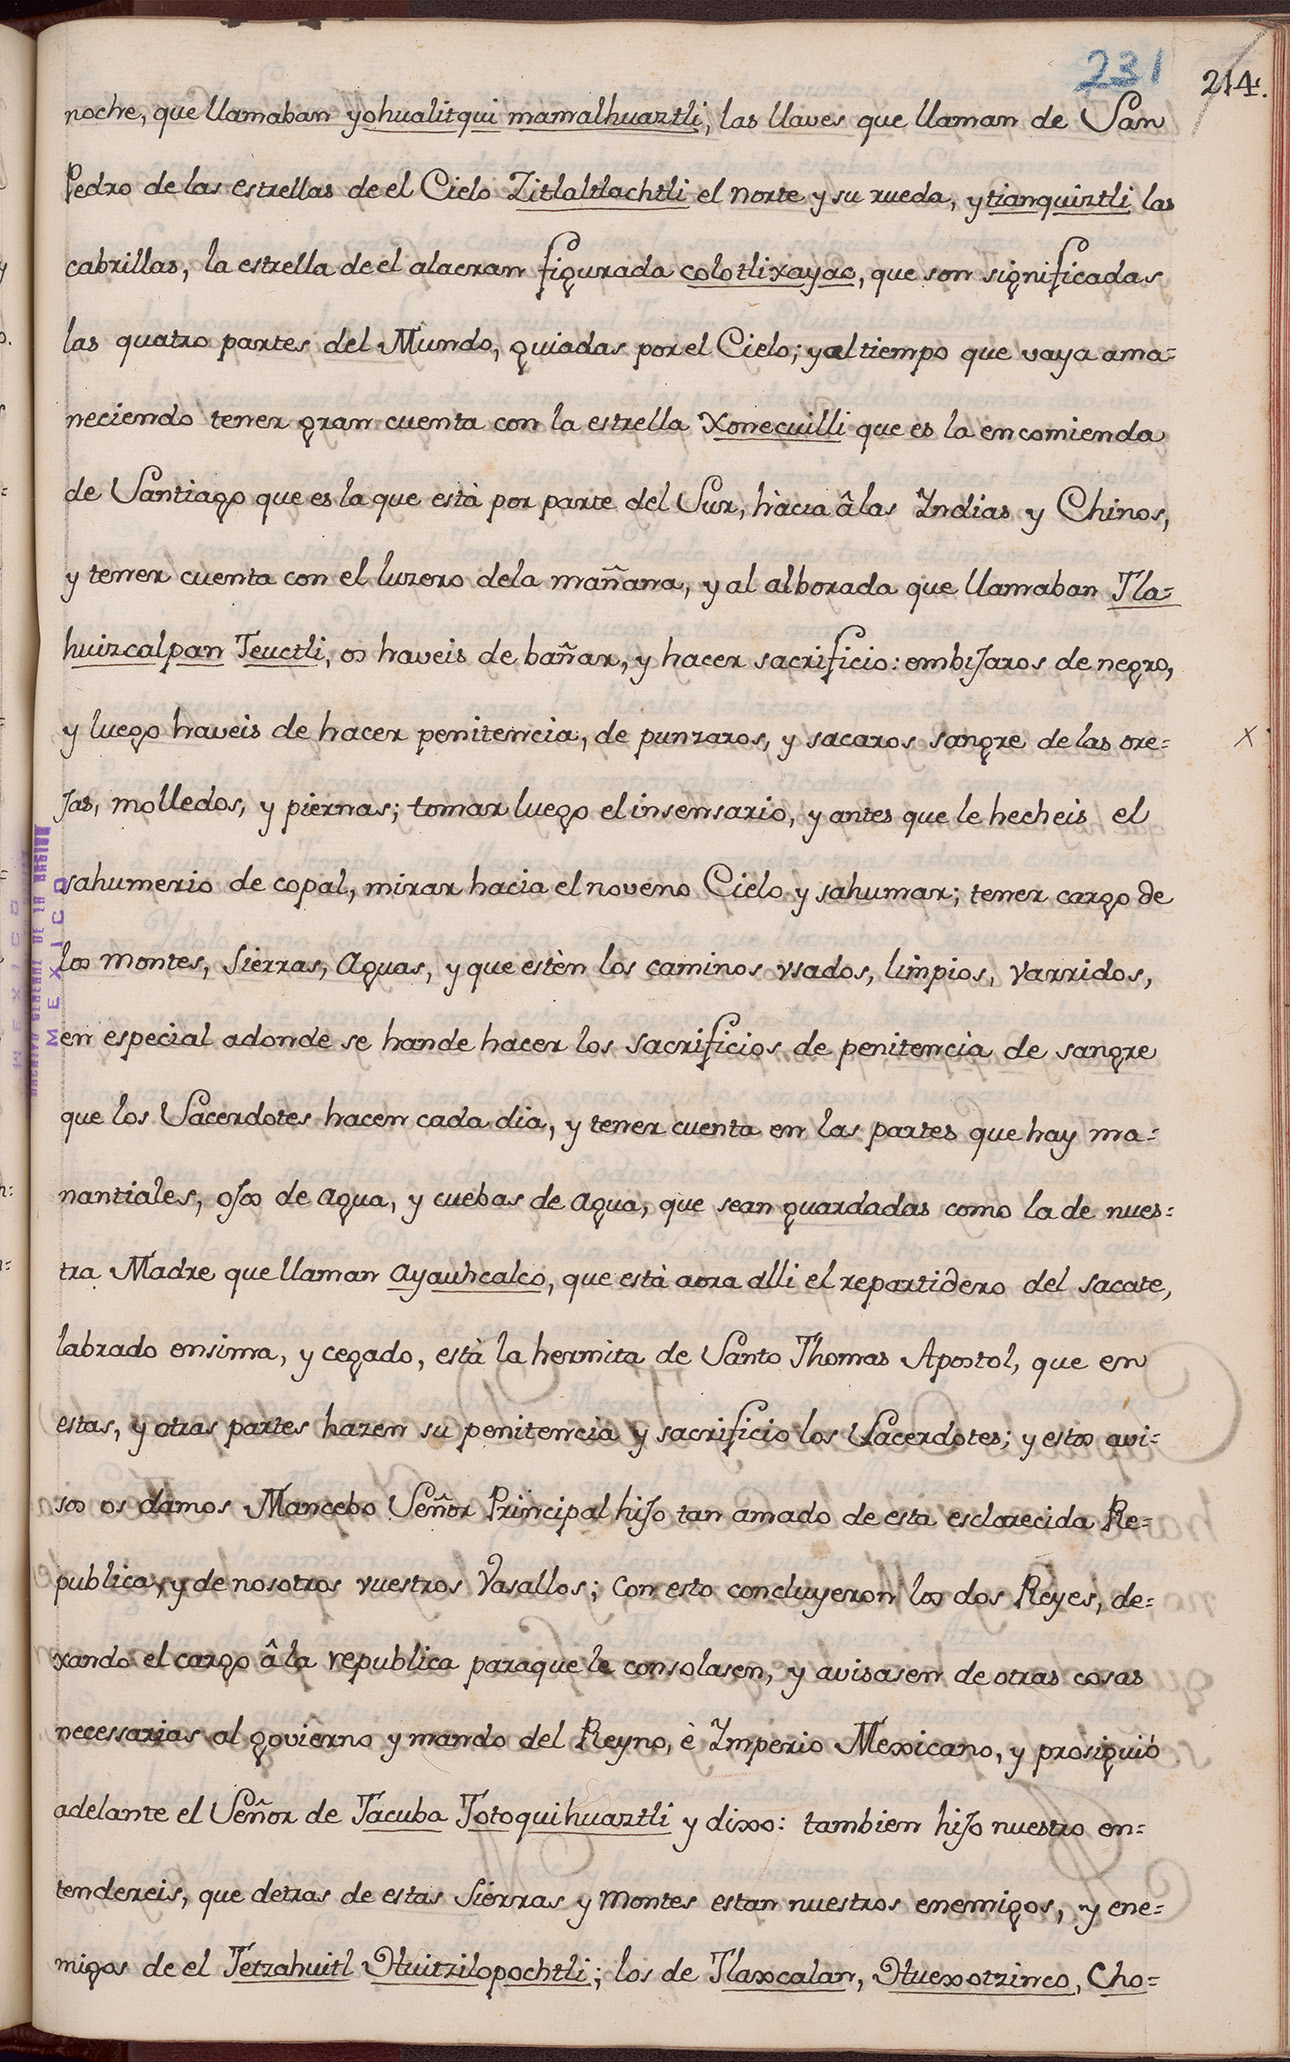 231
214.
noche, que llamaban yohualitqui mamalhuaztli, las llaves que llaman de San
Pedro de las estrellas de el Cielo Zitlaltlachtli el norte y su rueda, y tianquiztli las
cabrillas, la estrella de el alacran figurada colotlixayac, que son significadas
las quatro partes del Mundo, guiadas por el Cielo; y al tiempo que vaya ama=
neciendo tener gran cuenta con la estrella Xonecuilli que es la encomienda
de Santiago que es la que està por parte del Sur, hàcia â las Indias y Chinos,
y tener cuenta con el luzero dela mañana, y al alborada que llamaban Tla=
huizcalpan Teuctli, os haveis de bañar, y hacer sacrificio: embijaros de negro,
y luego haveis de hacer penitencia, de punzaros, y sacaros sangre de las ore=
jas, molledos, y piernas; tomar luego el insensario, y antes que le hecheis el
sahumerio de copal, mirar hacia el noveno Cielo y sahumar; tener cargo de
los montes, Sierras, Aguas, y que estèn los caminos vsados, limpios, varridos,
en especial adonde se hande hacer los sacrificios de penitencia de sangre
que los Sacerdotes hacen cada dia, y tener cuenta en las partes que hay ma=
nantiales, ojos de agua, y cuebas de agua, que sean guardadas como la de nues=
tra Madre que llaman Ayauhcalco, que està aora alli el repartidero del sacate,
labrado ensima, y cegado, està la hermita de Santo Thomas Apostol, que en
estas, y otras partes hazen su penitencia y sacrificio los Sacerdotes; y estos avi=
sos os damos Mancebo Señor Principal hijo tan amado de esta esclarecida Re=
publica, y de nosotros vuestros Vasallos; Con esto concluyeron los dos Reyes, de=
xando el cargo â la republica paraque le consolasen, y avisasen de otras cosas
necessarias al govierno y mando del Reyno, è Imperio Mexicano, y prosiguió
adelante el Señor de Tacuba Totoquihuaztli y dixo: tambien hijo nuestro en=
tendereis, que detras de estas Sierras y Montes estan nuestros enemigos, y ene=
migos de el Tetzahuitl Huitzilopochtli; los de Tlaxcalan, Huexotzinco, Cho=
X
MEXICO